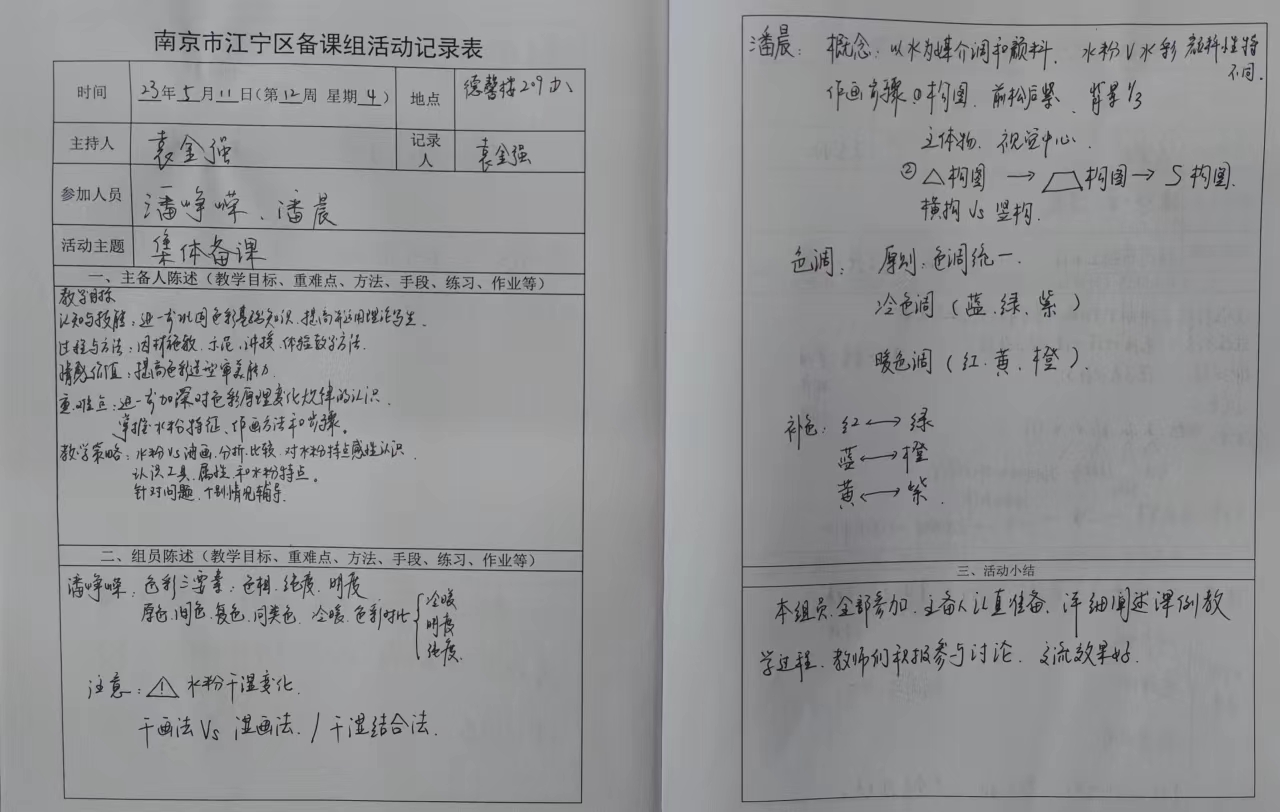 南京市江宁区备课组活动记录表
时间 23年5月11日(第12周 星期4) 地点 德馨楼209办
主持人 袁金强 记录人 袁金强
参加人员 潘峥嵘、潘晨
活动主题 集体备课
一、主备人陈述（教学目标、重难点、方法、手段、练习、作业等）
教学目标
认知与技能：进一步巩固色彩基础知识，提高并运用理论写生.
过程与方法：因材施教、示范、讲授、体验教学方法.
情感价值：提高色彩造型审美能力.
重难点：进一步加深对色彩原理变化规律的认识.
掌握水粉特征、作画方法和步骤。
教学策略：水粉Vs油画.分析.比较.对水粉特点感性认识.
认识工具、属性、和水粉特点。
针对问题、个别情况辅导.
二、组员陈述（教学目标、重难点、方法、手段、练习、作业等）
潘峥嵘：色彩三要素：色相.纯度.明度
原色.间色.复色.同类色.冷暖.色彩对比{冷暖
明度
纯度.
注意：⚠ 水粉干湿变化.
干画法Vs 湿画法./干湿结合法.
潘晨：概念：以水为媒介调和颜料. 水粉V水彩 颜料性特
不同.
作画步骤①构图.前松后紧、背景1/3
主体物.视觉中心.
②△构图→⏢构图→S构图.
横构Vs竖构.
色调： 原则：色调统一.
冷色调（蓝.绿.紫）
暖色调（红.黄.橙）.
补色：红←→绿
蓝←→橙
黄←→紫.
三、活动小结
本组员全部参加.主备人认真准备、详细阐述课例教
学过程.教师们积极参与讨论.交流效果好.